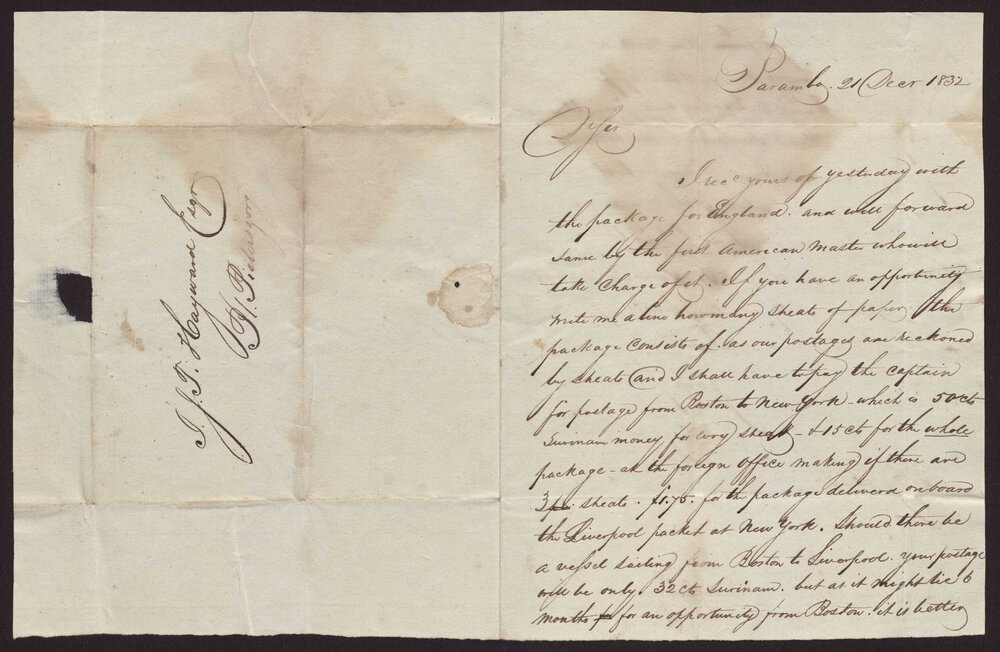 J. T. Hayward Esqr
Parambo. 21 Decr 1832
Sir
I recd yours of yesterday with
the package for England. and will forward
same by the first American Master who will
take Charge of it. If you have an opportunity
write me a line how many sheats of paper the
package Consists of. as our postages are reckoned
by sheats and I shall have to pay the Captain
for postage from Boston to New York - which is 50 cts
Surinam money for evry sheat - & 15 cts for the whole
package - at the foreign office making if there are
3 sheats. $1.75. for the package deliverd on board
the Liverpool packet at New York. Should there be
a vessel sailing from Boston to Liverpool. your postage
will be only. 32 cts Surinam. but as it might lie 6
months for an opportunity from Boston. it is better